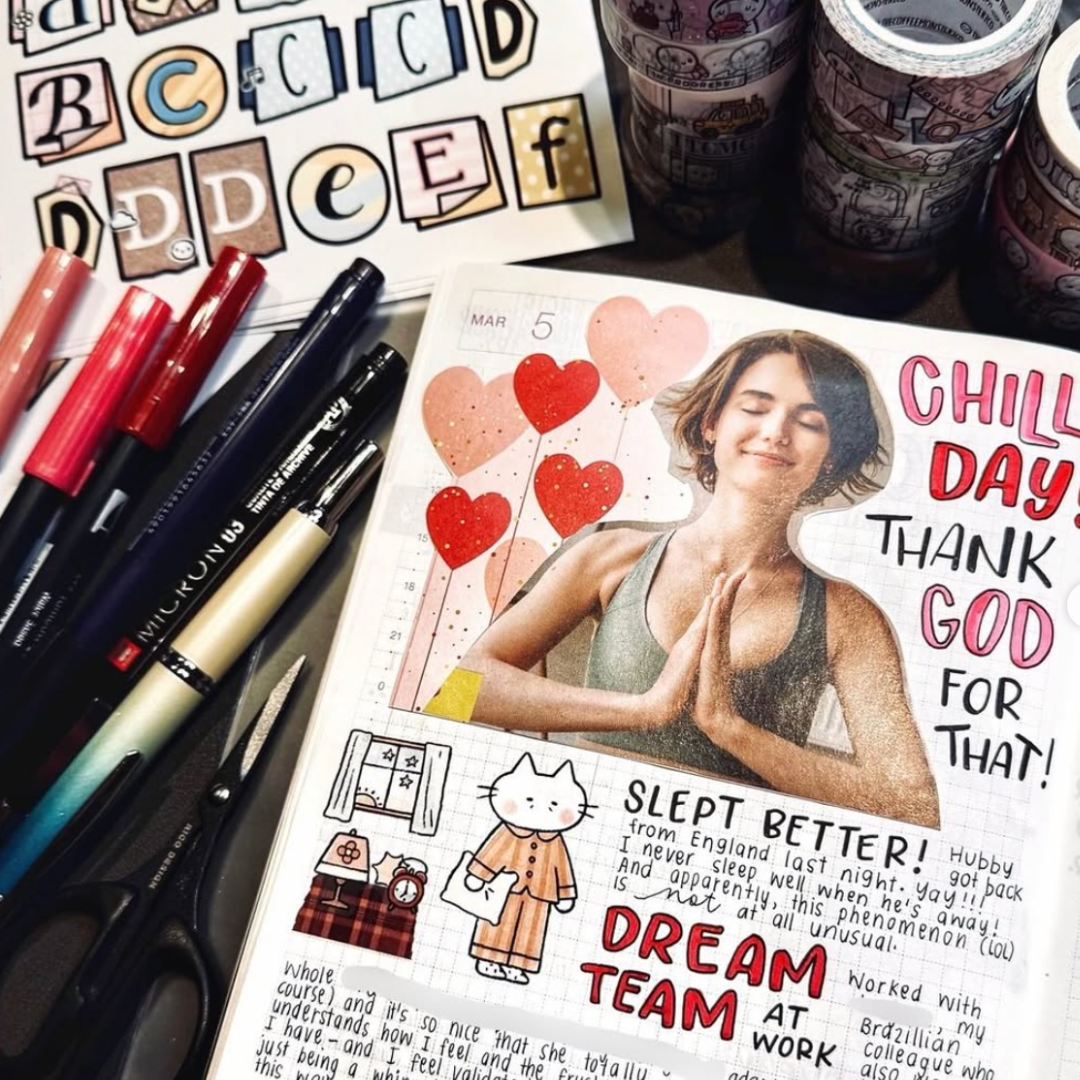 a
B C C C D
D D D e E f
MICRON 05
TINTA DE ARCHIVO
BIDO DESIGN
MAR 5
15
18
21
0
CHILL
DAY!
THANK
GOD
FOR
THAT!
SLEPT BETTER! Hubby
from England last night. Yay!!! got back
I never sleep well when he's away!
And apparently, this phenomenon
is not at all unusual. (LOL)
DREAM
TEAM AT
WORK
Worked with
my
Brazillian
colleague who
also
whole
course) and it's so nice that she totally
understands how I feel and the
I have - and I feel
just being a
this